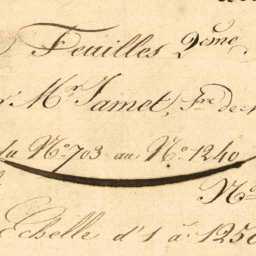 Feuilles 2ème
Mr. Jamet, Fre de
du No. 703 au No. 1240
No
Echelle d'1 à 1250